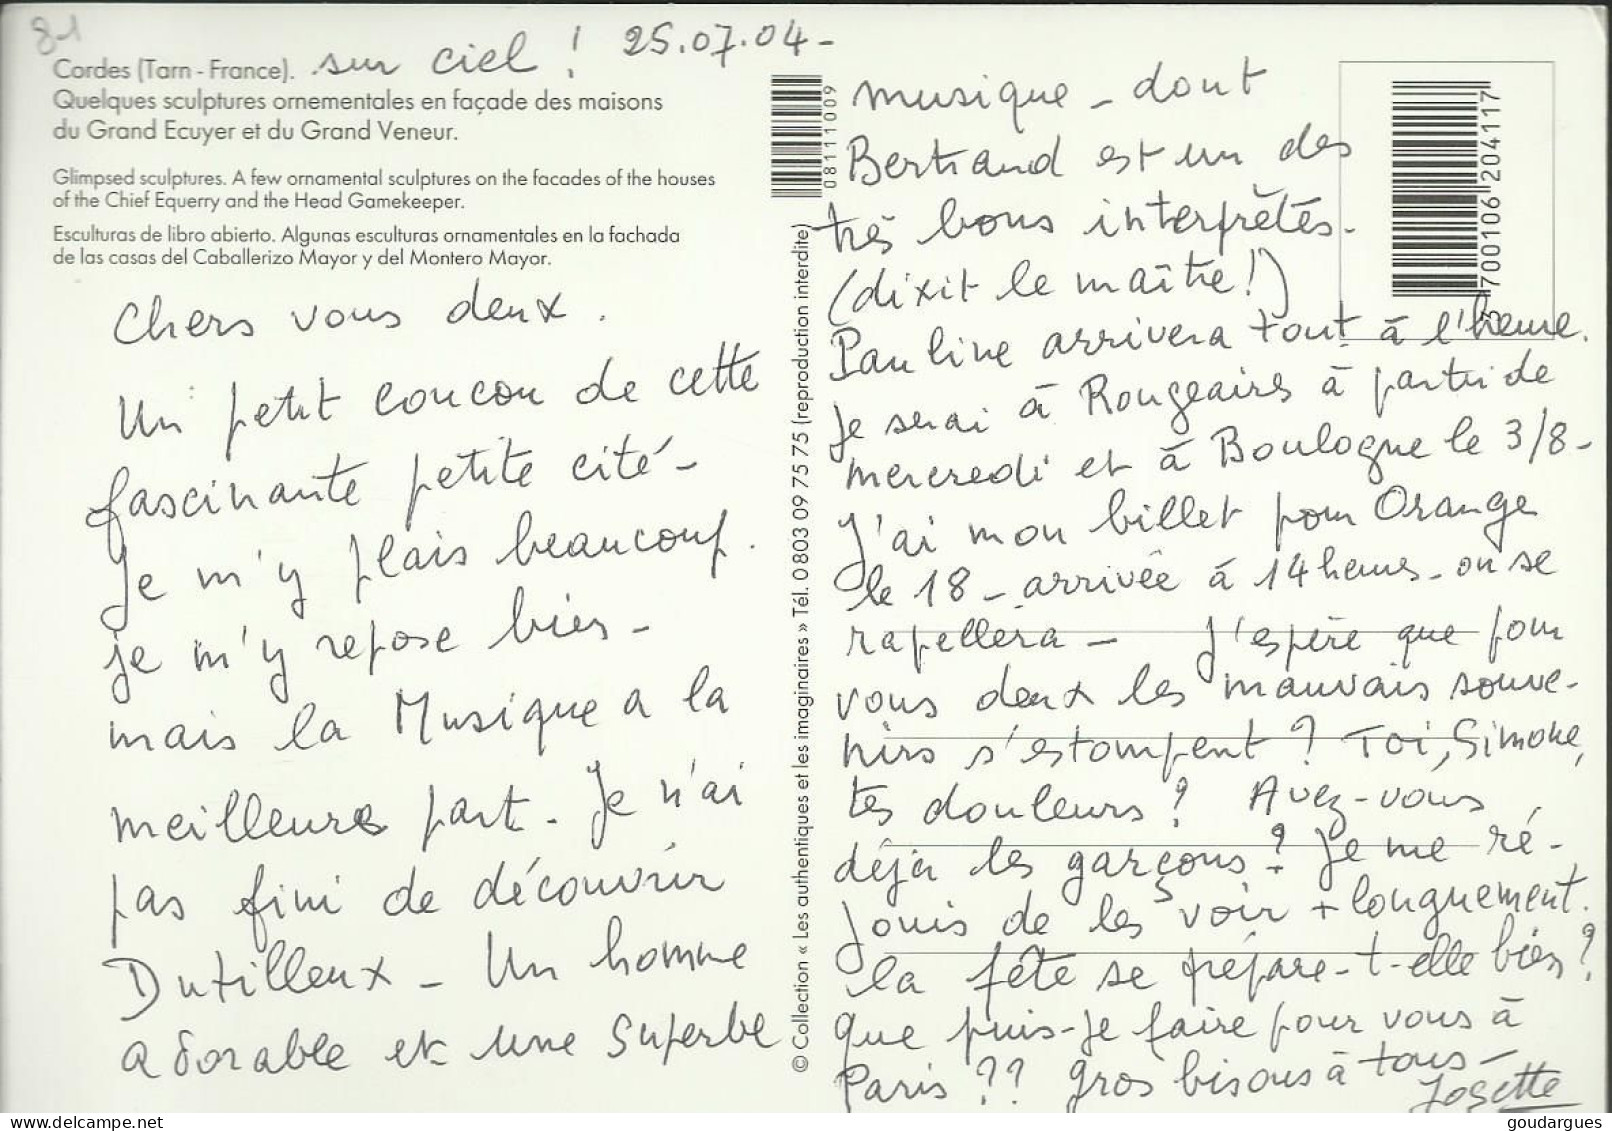 81
Cordes (Tarn - France). sur ciel ! 25.07.04-
Quelques sculptures ornementales en façade des maisons
du Grand Ecuyer et du Grand Veneur.
Glimpsed sculptures. A few ornamental sculptures on the facades of the houses
of the Chief Equerry and the Head Gamekeeper.
Esculturas de libro abierto. Algunas esculturas ornamentales en la fachada
de las casas del Caballerizo Mayor y del Montero Mayor.
Chers vous deux.
Un petit coucou de cette
fascinante petite cité-
Je m'y plais beaucoup.
je m'y repose bien-
mais la Musique a la
meilleure part. Je n'ai
pas fini de découvrir
Dutilleux - Un homme
adorable et une superbe
08111009
© Collection « Les authentiques et les imaginaires » Tél. 0 803 09 75 75 (reproduction interdite)
musique - dont
Bertrand est un des
très bons interprètes.
(dixit le maître!)
Pauline arrivera tout à l'heure.
Je serai à Rougeairs à partir de
mercredi et à Boulogne le 3/8-
J'ai mon billet pour Orange
le 18 - arrivée à 14 heures - on se
rapellera - J'espère que pour
vous deux les mauvais souve-
nirs s'estompent ? Toi, Simone,
tes douleurs ? Avez-vous
déjà les garçons ? Je me ré-
jouis de les voir + longuement.
la fête se prépare-t-elle bien ?
que puis-je faire pour vous à
Paris ?? gros bisous à tous -
Josette
700106 204117
goudargues